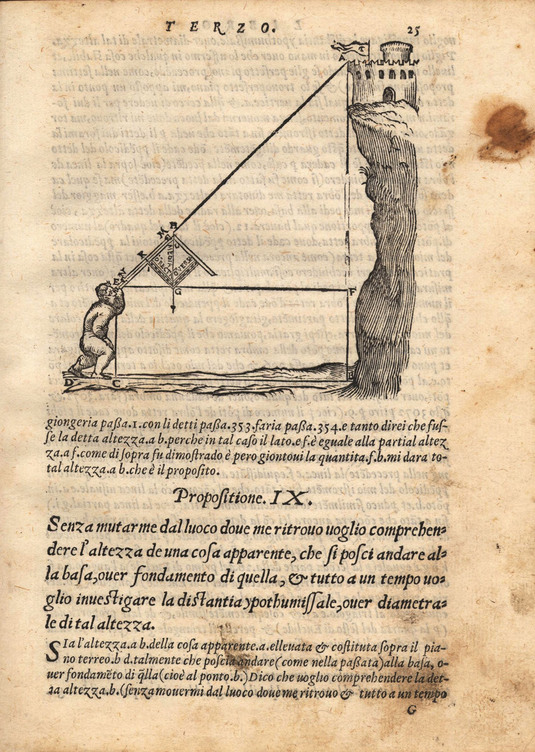 TERZO. 25
A
B
M
N
E
G
F
D C
giongeria paſſa.1.con li detti paſſa.353.faria paſſa.354.e tanto direi che fuſ-
ſe la detta altezza.a b.perche in tal caſo il lato.e f.è eguale alla partial altez
za.a f.come di ſopra fu dimoſtrado è pero giontoui la quantita.f.b.mi dara to-
tal altezza.a b.che è il propoſito.
Propoſitione. IX.
Senza mutarme dal luoco doue me ritrouo uoglio comprehen-
dere l'altezza de una coſa apparente, che ſi poſci andare al-
la baſa,ouer fondamento di quella, & tutto a un tempo uo-
glio inueſtigare la diſtantia ypothumiſſale,ouer diametra-
le di tal altezza.
SIa l'altezza.a b.della coſa apparente.a.elleuata & coſtituta ſopra il pia-
no terreo.b d.talmente che poſcia andare(come nella paſſata)alla baſa, o-
uer fondamẽto di q̃lla(cioè al ponto.b.)Dico che uoglio comprehendere la det-
ta altezza.b.(ſenza mouermi dal luoco doue me ritrouo & tutto a un tempo
G